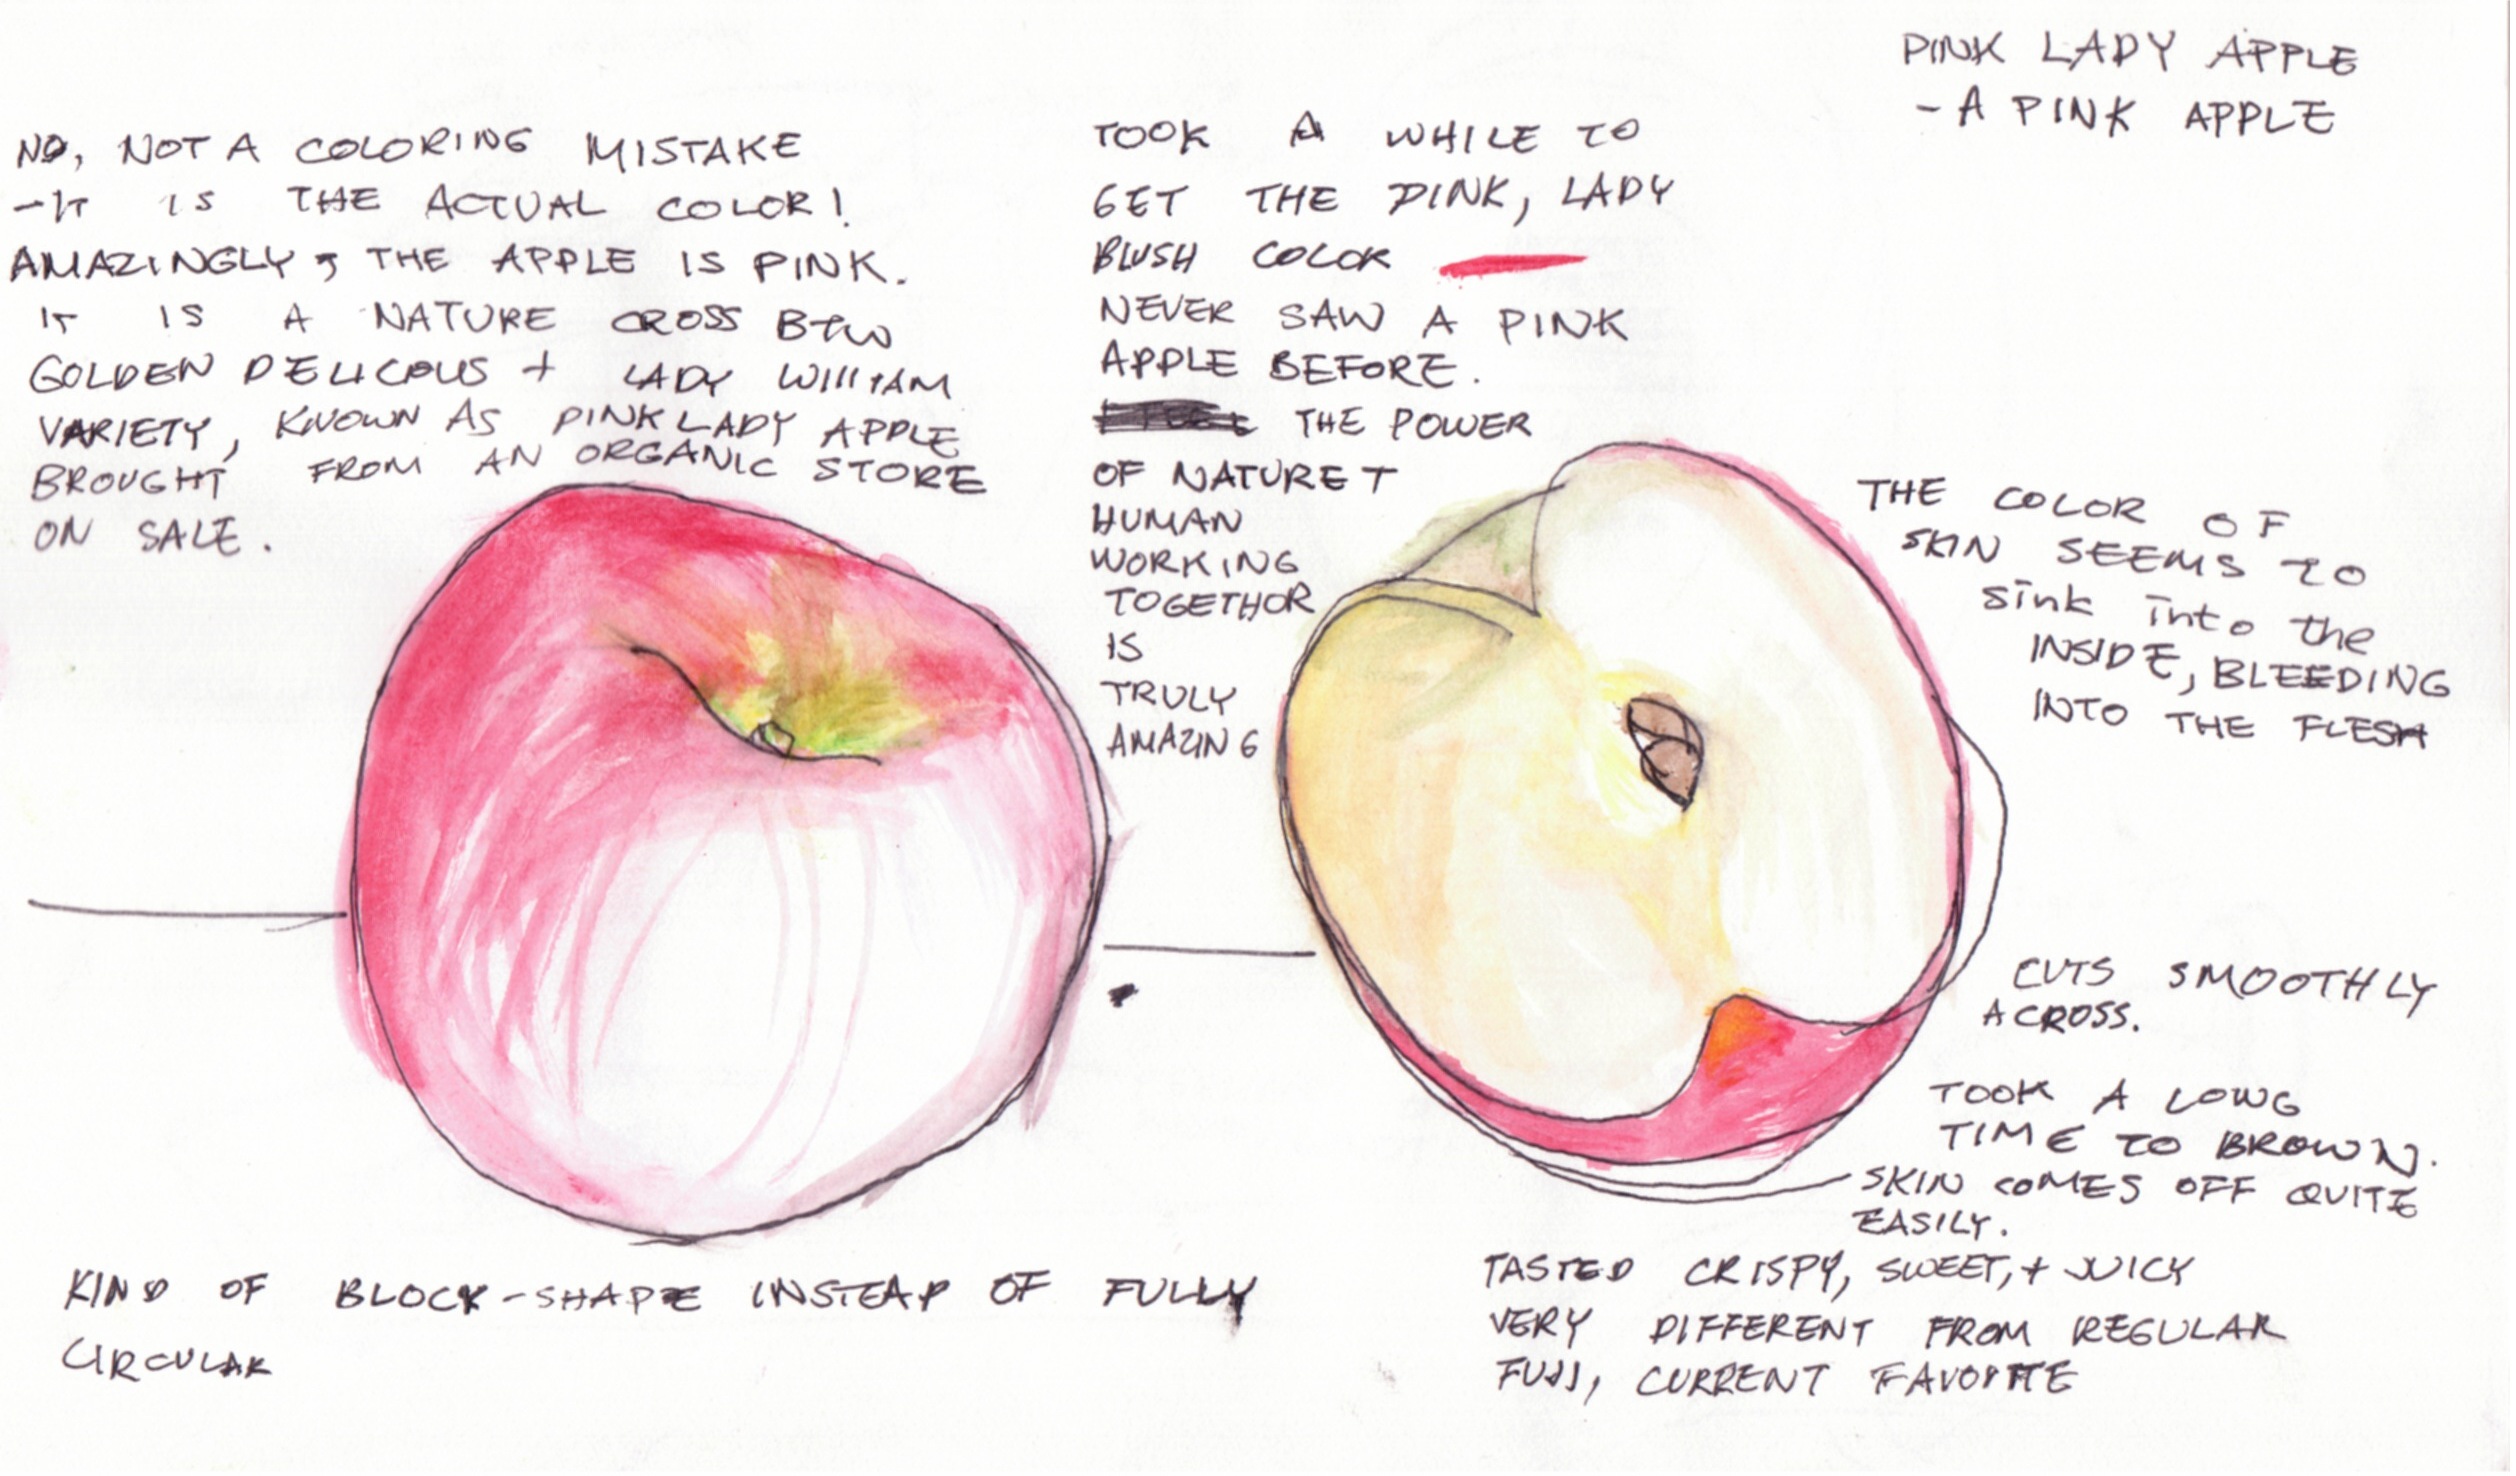 PINK LADY APPLE
- A PINK APPLE
NO, NOT A COLORING MISTAKE
- IT IS THE ACTUAL COLOR!
AMAZINGLY, THE APPLE IS PINK.
IT IS A NATURE CROSS BTW
GOLDEN DELICOUS + LADY WILLIAM
VARIETY, KNOWN AS PINK LADY APPLE
BROUGHT FROM AN ORGANIC STORE
ON SALE.
TOOK A WHILE TO
GET THE PINK, LADY
BLUSH COLOR
NEVER SAW A PINK
APPLE BEFORE.
THE POWER
OF NATURE +
HUMAN
WORKING
TOGETHOR
IS
TRULY
AMAZING
THE COLOR OF
SKIN SEEMS TO
sink into the
INSIDE, BLEEDING
INTO THE FLESH
CUTS SMOOTHLY
ACROSS.
TOOK A LONG
TIME TO BROWN.
SKIN COMES OFF QUITE
EASILY.
KIND OF BLOCK-SHAPE INSTEAD OF FULLY
CIRCULAR
TASTED CRISPY, SWEET, + JUICY
VERY DIFFERENT FROM REGULAR
FUJI, CURRENT FAVORITE